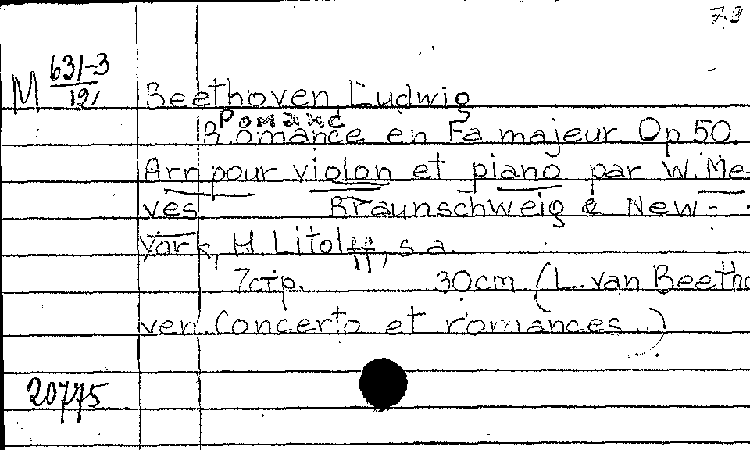 7-3
M 631-3/191
Beethoven, Ludwig
Romance
Romance en Fa majeur Op 50.
Arr. pour violon et piano par W. Me-
ves. Braunschweig & New-
York, H. Litolff, s.a.
7 стр. 30 cm (L. van Beetho-
ven. Concerto et romances.)
20775